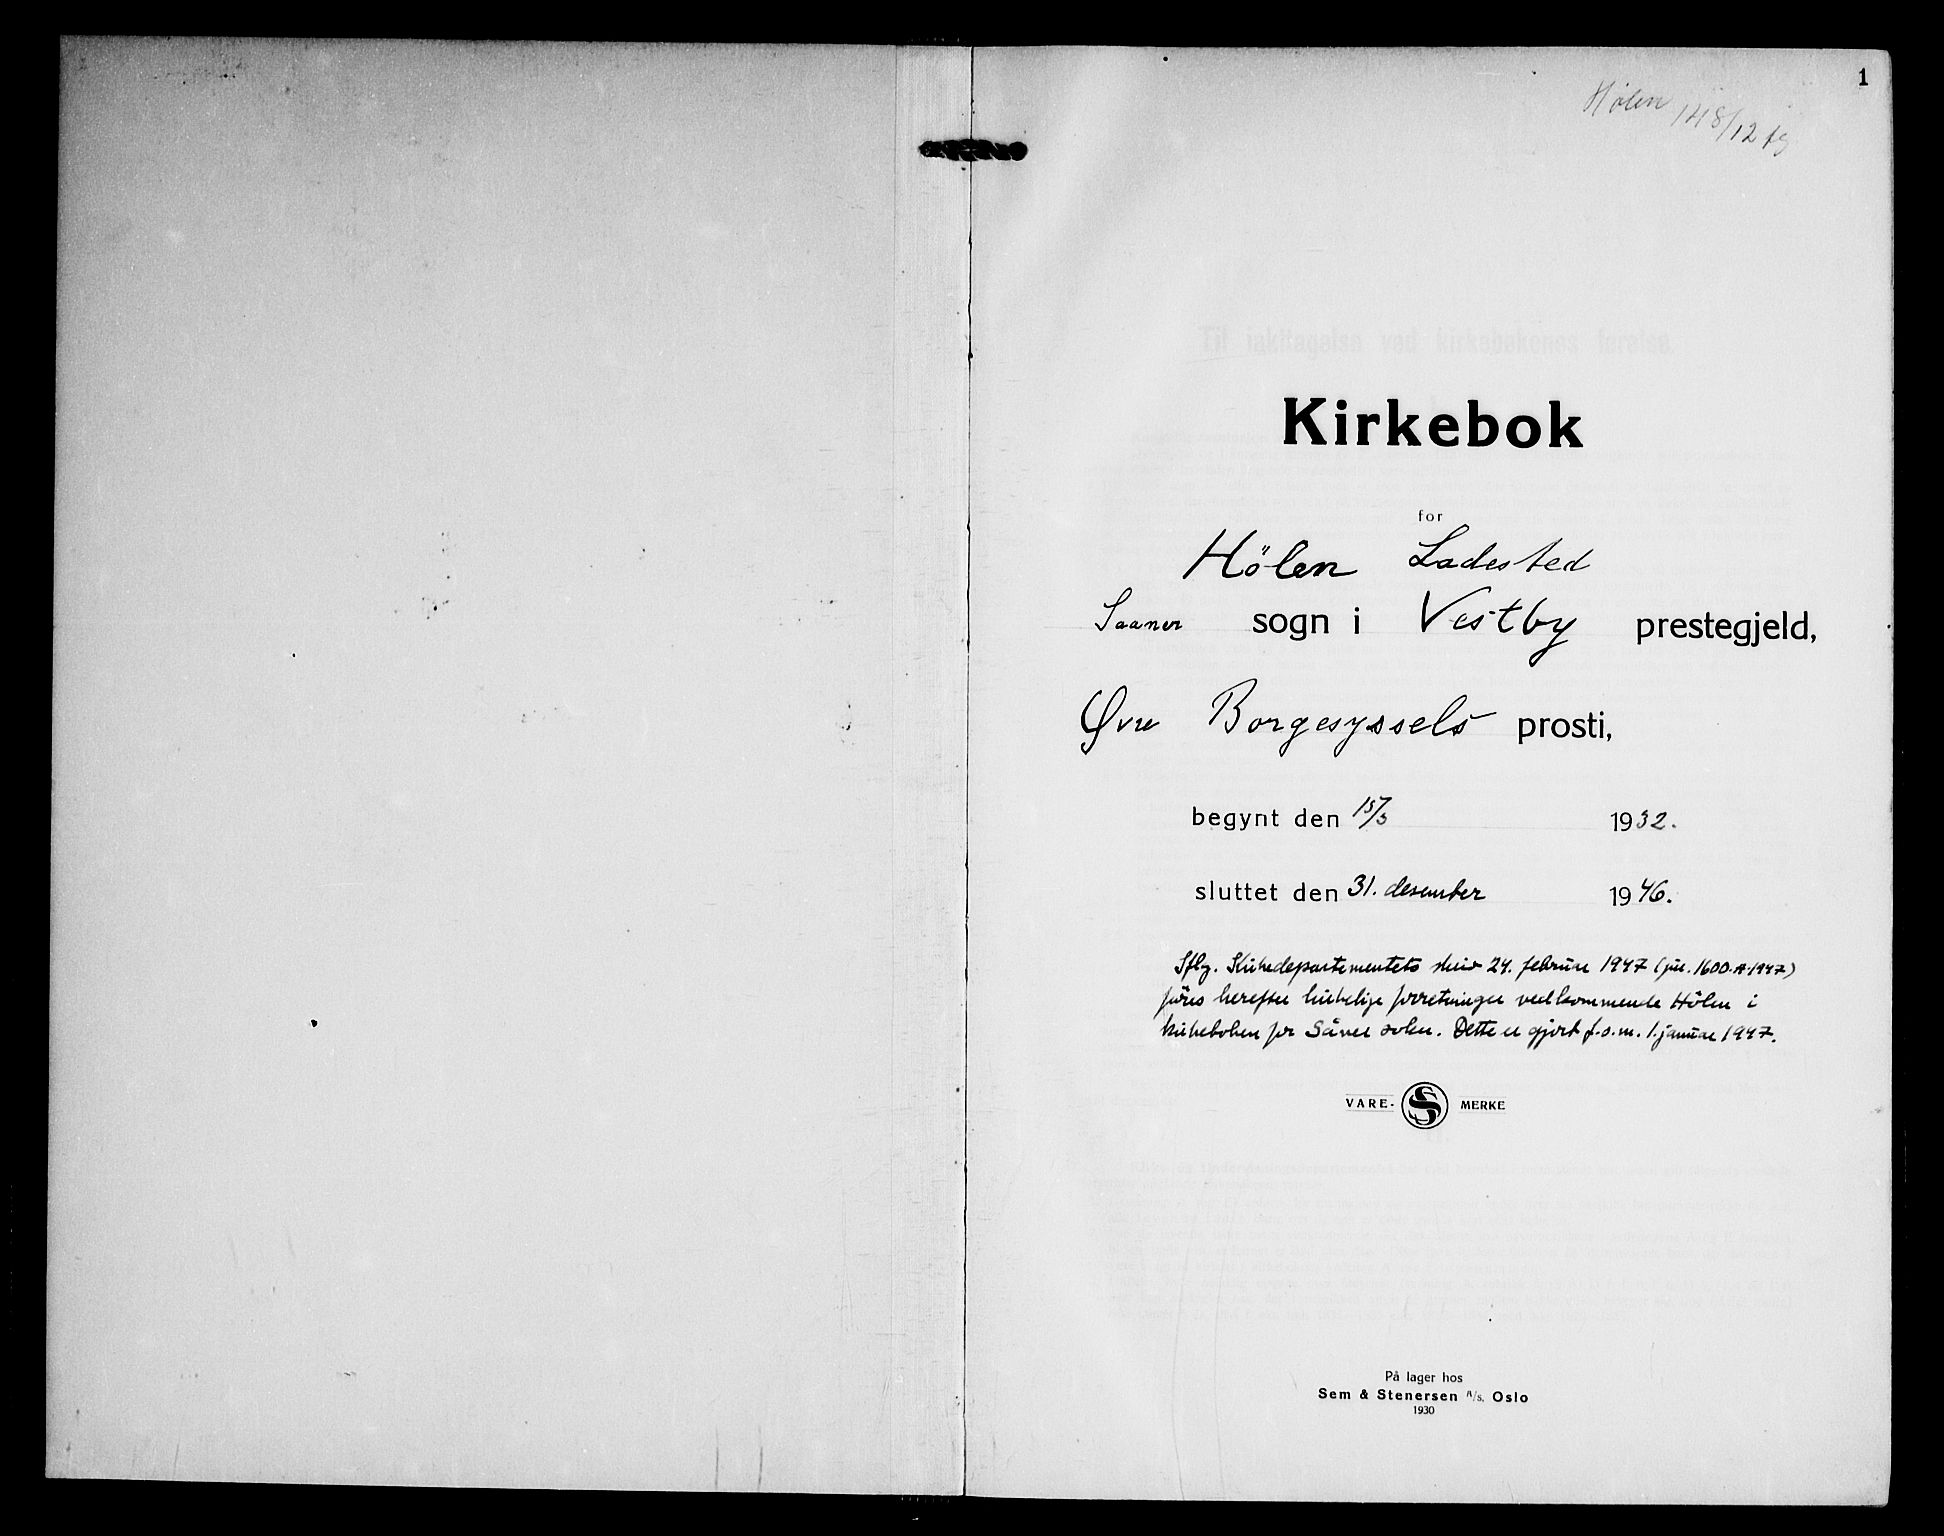 1
Hølen 148/12
Til iakttagelse ved kirkebøkenes førelse
Kirkebok
for
Hölen Ladested
Saaner sogn i Vestby prestegjeld,
Øvre Borgesyssels prosti,
begynt den 15/3 1932.
sluttet den 31. desember 1946.
Iflg. Kirkedepartementets skriv 24. februar 1947 (jnr. 1600. A. 1947)
føres herefter kirkelige forretninger vedkommende Hölen i
kirkeboken for Såner sokn. Dette er gjort f.o.m. 1. januar 1947.
VARE- S MERKE
På lager hos
Sem & Stenersen A/S. Oslo
1930